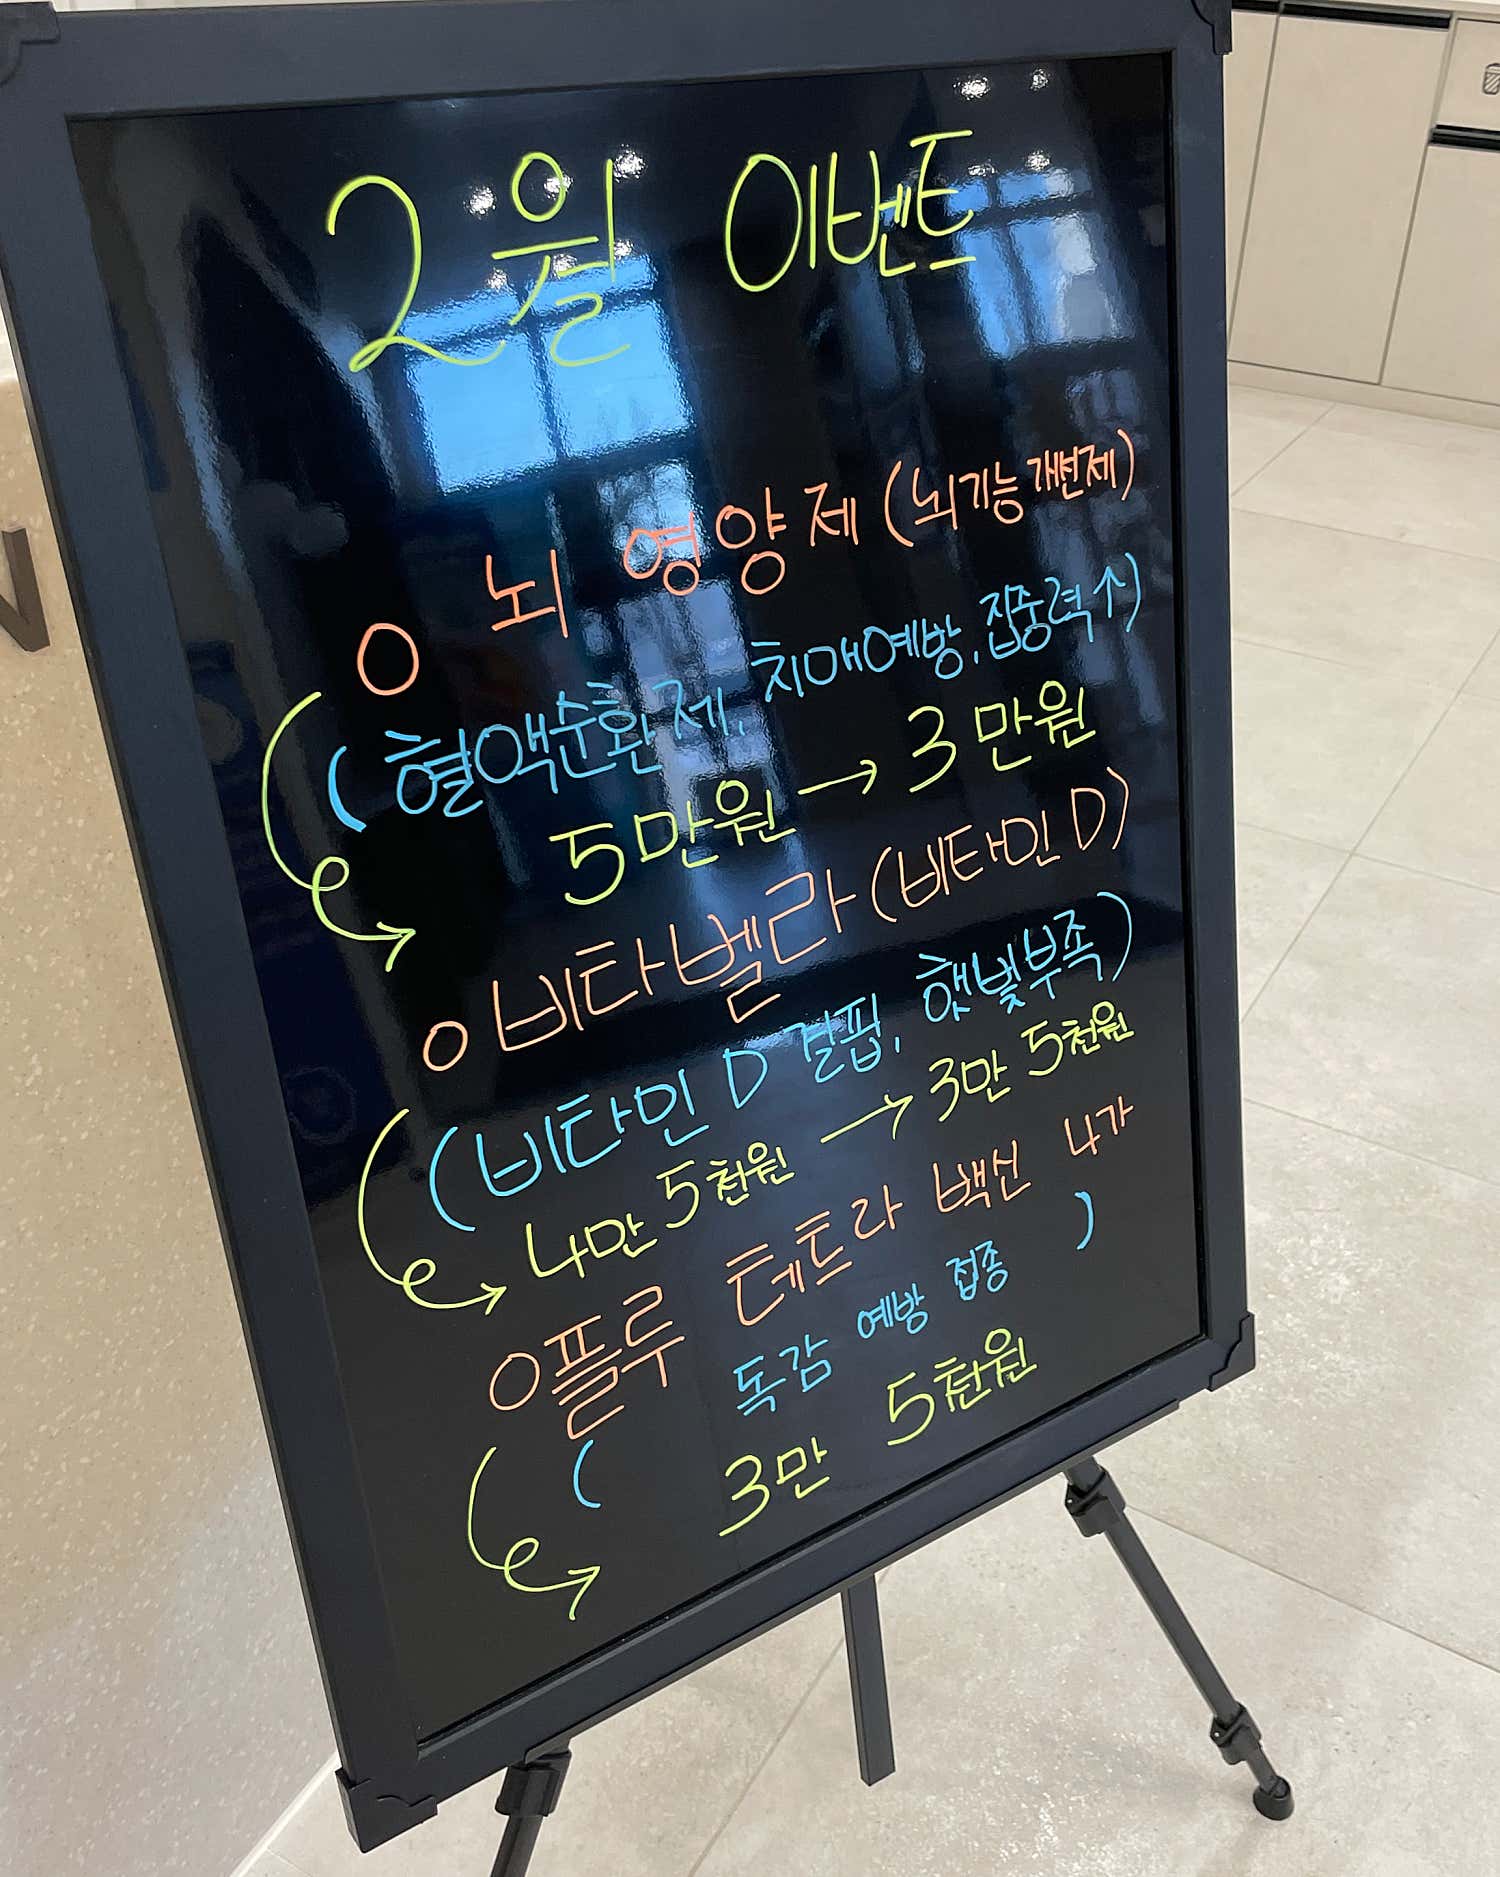 2월 이벤트
O 뇌 영양제 (뇌기능 개변제)
( 혈액순환제, 치매예방, 집중력↑)
5만원 → 3만원
O 비타벨라 (비타민 D)
(비타민 D 결핍, 햇빛부족)
4만 5천원 → 3만 5천원
O 플루 테트라 백신 4가
( 독감 예방 접종 )
3만 5천원